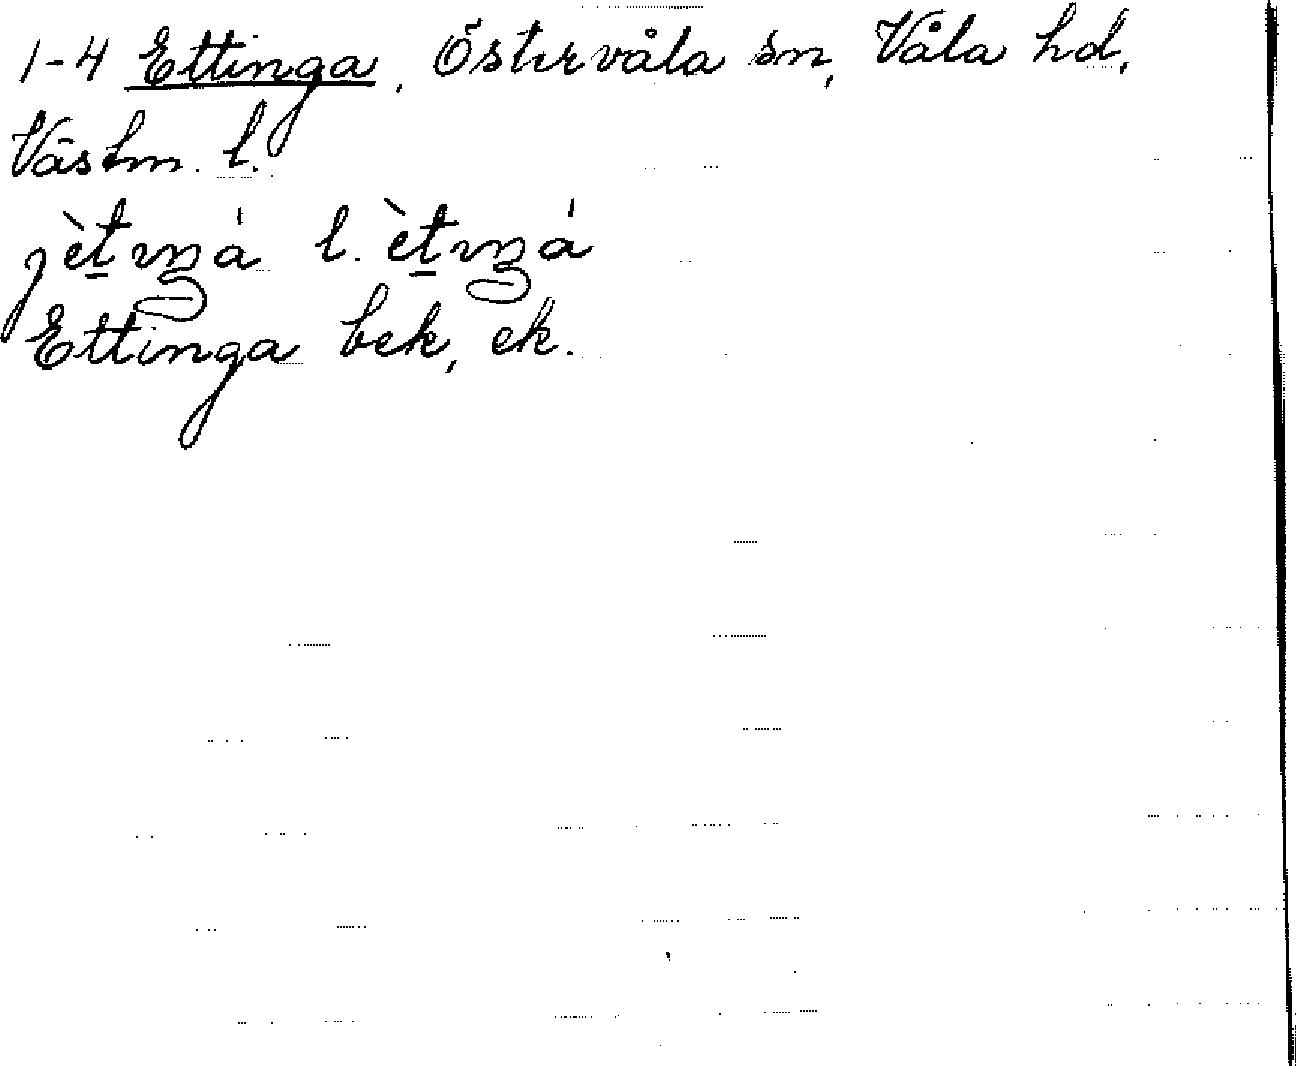 1-4 Ettinga, Östervåla sn, Våla hd,
Västm. l.
jèt̲ıŋá l. èt̲ıŋá
Ettinga bek, ek.